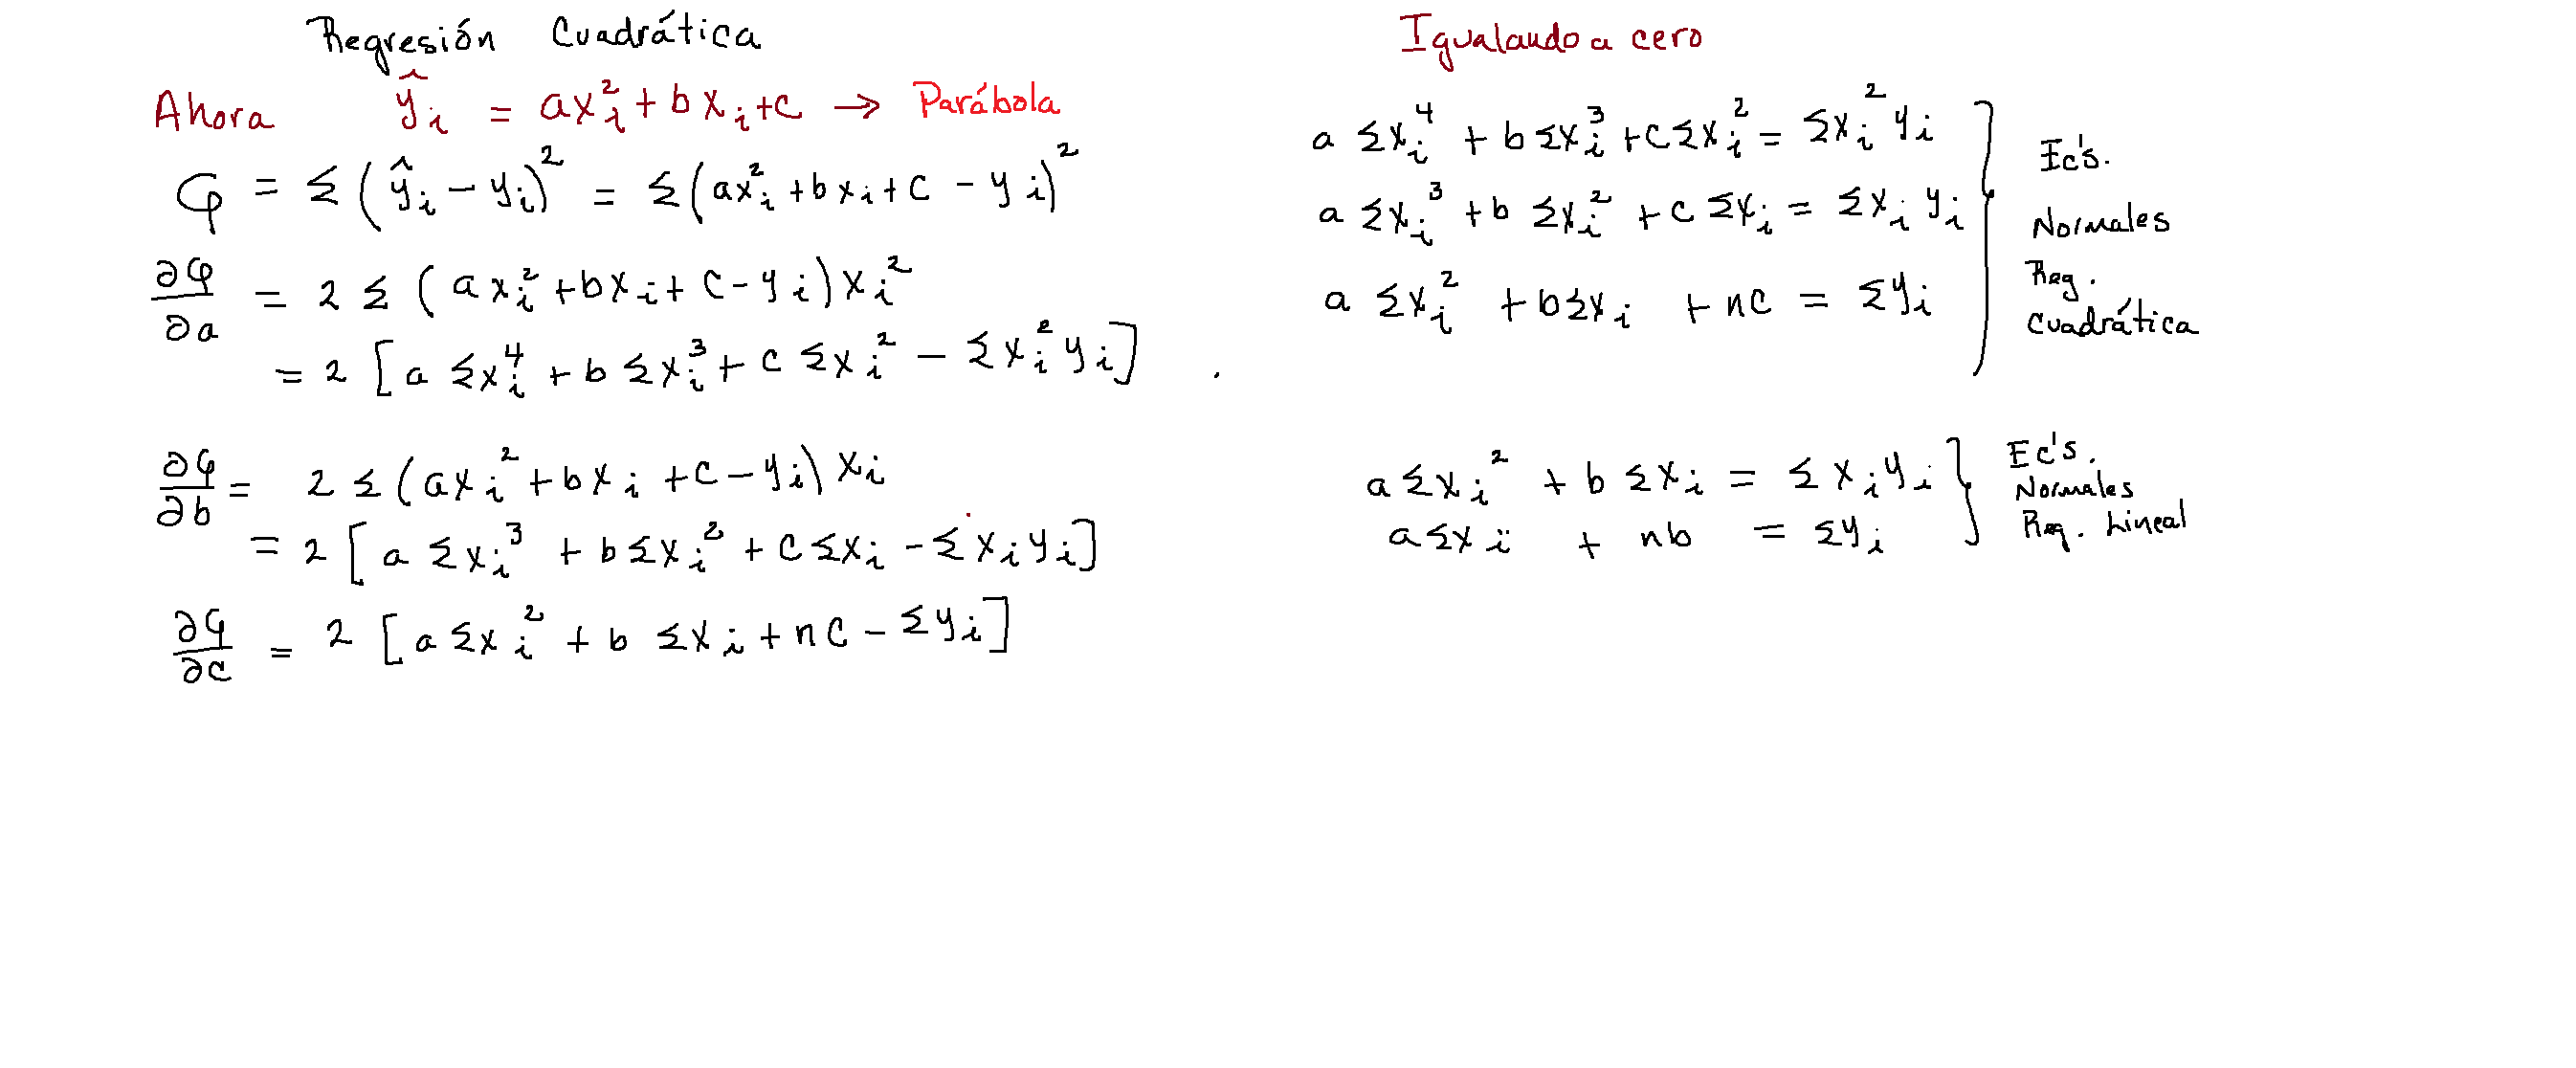 Regresión Cuadrática
Ahora ŷᵢ = axᵢ² + bxᵢ + c → Parábola
φ = Σ(ŷᵢ − yᵢ)² = Σ(axᵢ² + bxᵢ + c − yᵢ)²
∂φ/∂a = 2 Σ (axᵢ² + bxᵢ + c − yᵢ)xᵢ²
= 2 [a Σxᵢ⁴ + b Σxᵢ³ + c Σxᵢ² − Σxᵢ²yᵢ]
∂φ/∂b = 2 Σ(axᵢ² + bxᵢ + c − yᵢ)xᵢ
= 2 [a Σxᵢ³ + bΣxᵢ² + cΣxᵢ − Σxᵢyᵢ]
∂φ/∂c = 2 [a Σxᵢ² + b Σxᵢ + nc − Σyᵢ]
Igualando a cero
a Σxᵢ⁴ + bΣxᵢ³ + cΣxᵢ² = Σxᵢ²yᵢ
a Σxᵢ³ + b Σxᵢ² + c Σxᵢ = Σxᵢyᵢ
a Σxᵢ² + bΣxᵢ + nc = Σyᵢ
Ec's.
Normales
Reg.
Cuadrática
aΣxᵢ² + b Σxᵢ = Σxᵢyᵢ
aΣxᵢ + nb = Σyᵢ
Ec's.
Normales
Reg. Lineal